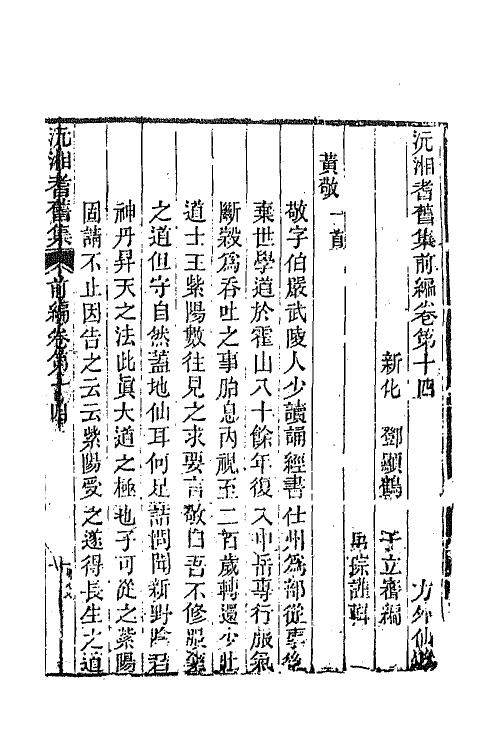 沅湘耆舊集前編卷第十四　方外仙
新化　鄧顯鶴　子立審編
男琮謹輯
黃敬一首
敬字伯嚴武陵人少讀誦經書仕州爲部從事後
棄世學道於霍山八十餘年復入中岳專行服氣
斷穀爲吞吐之事胎息內視至二百歲轉還少壯
道士王紫陽數往見之求要言敬曰吾不修服藥
之道但守自然蓋地仙耳何足詰問聞新野陰君
神丹昇天之法此眞大道之極也子可從之紫陽
固請不止因告之云云紫陽受之遂得長生之道
沅湘耆舊集　前編卷第十四　一